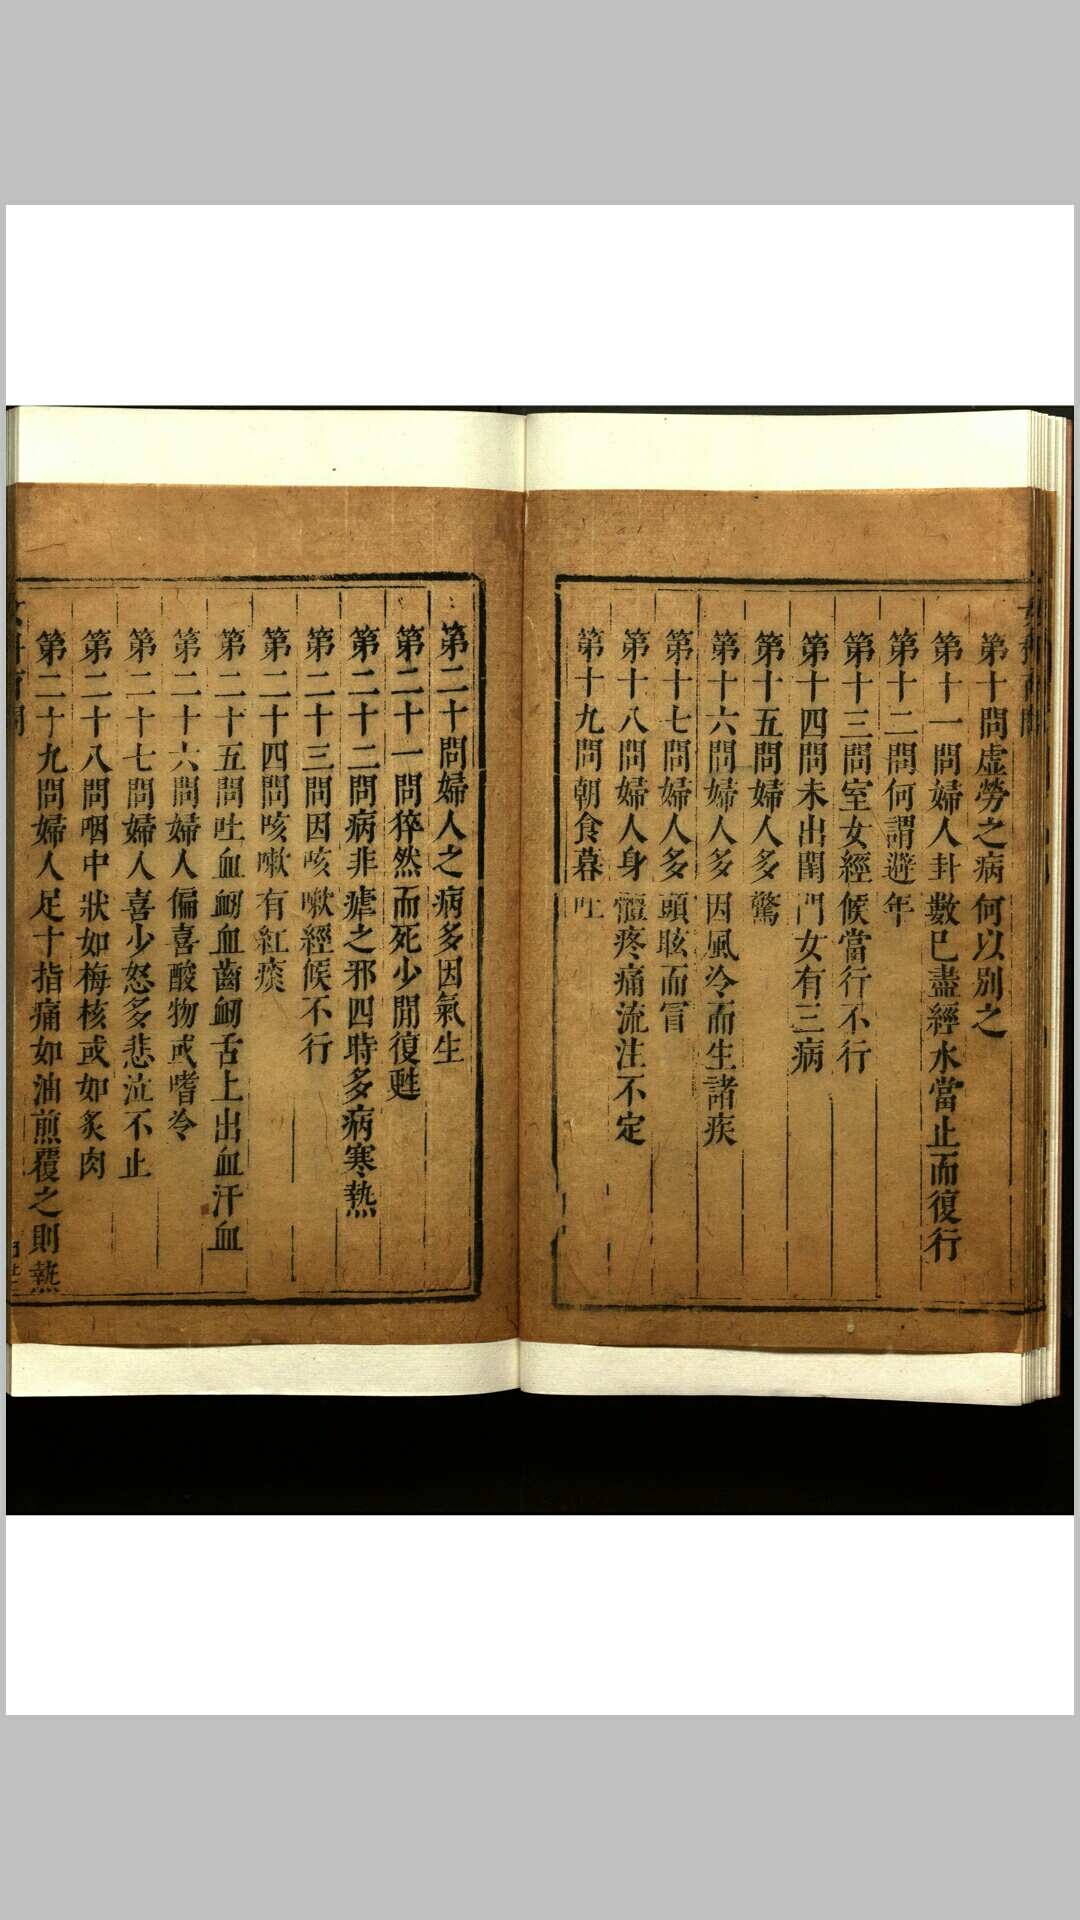 第十問虛勞之病何以別之
第十一問婦人卦數已盡經水當止而復行
第十二問何謂避年
第十三問室女經候當行不行
第十四問未出閨門女有三病
第十五問婦人多驚
第十六問婦人多因風冷而生諸疾
第十七問婦人多頭眩而冒
第十八問婦人身體疼痛流注不定
第十九問朝食暮吐
第二十問婦人之病多因氣生
第二十一問猝然而死少閒復甦
第二十二問病非瘧之邪四時多病寒熱
第二十三問因咳嗽經候不行
第二十四問咳嗽有紅痰
第二十五問吐血衂血齒衂舌上出血汗血
第二十六問婦人偏喜酸物或嗜冷
第二十七問婦人喜少怒多悲泣不止
第二十八問咽中狀如梅核或如炙肉
第二十九問婦人足十指痛如油煎覆之則熱